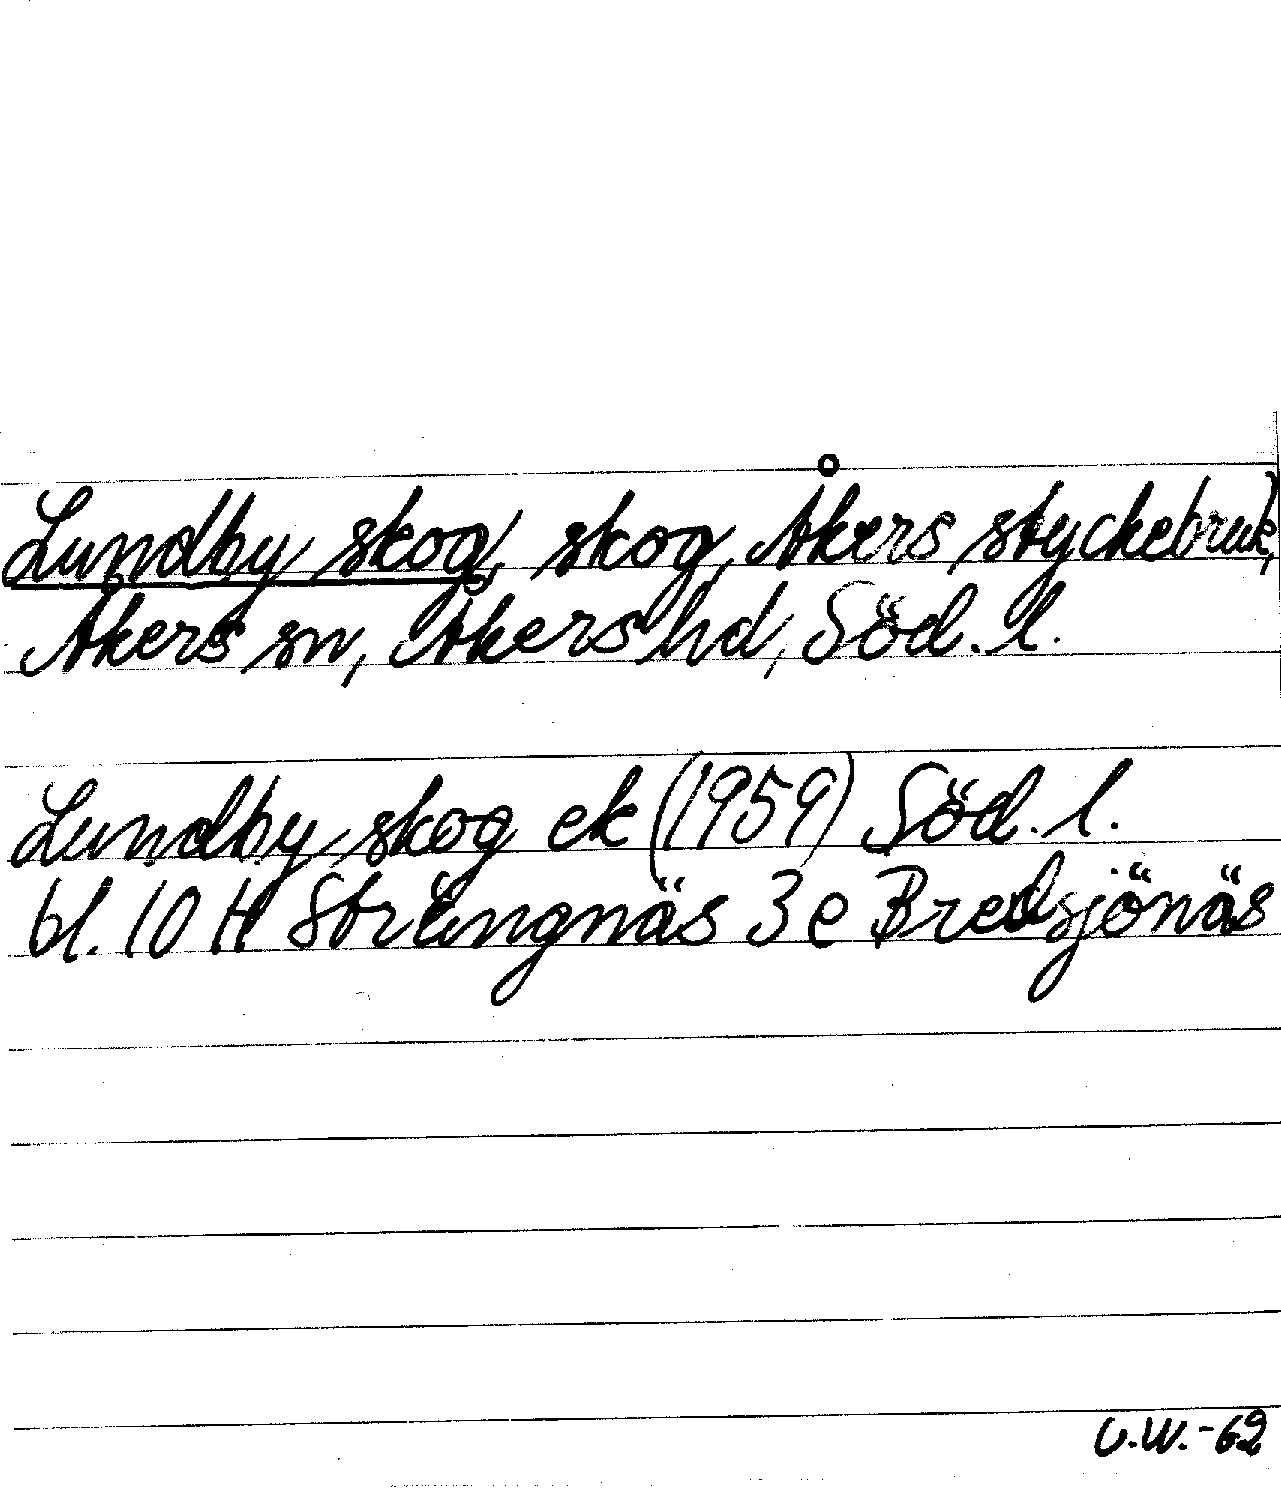 Lundby skog, skog, Åkers styckebruk,
Åkers sn, Åkers hd, Söd. l.
Lundby skog ek (1959) Söd. l.
bl. 10 H Strängnäs 3 e Bredsjönäs
U.W.-62